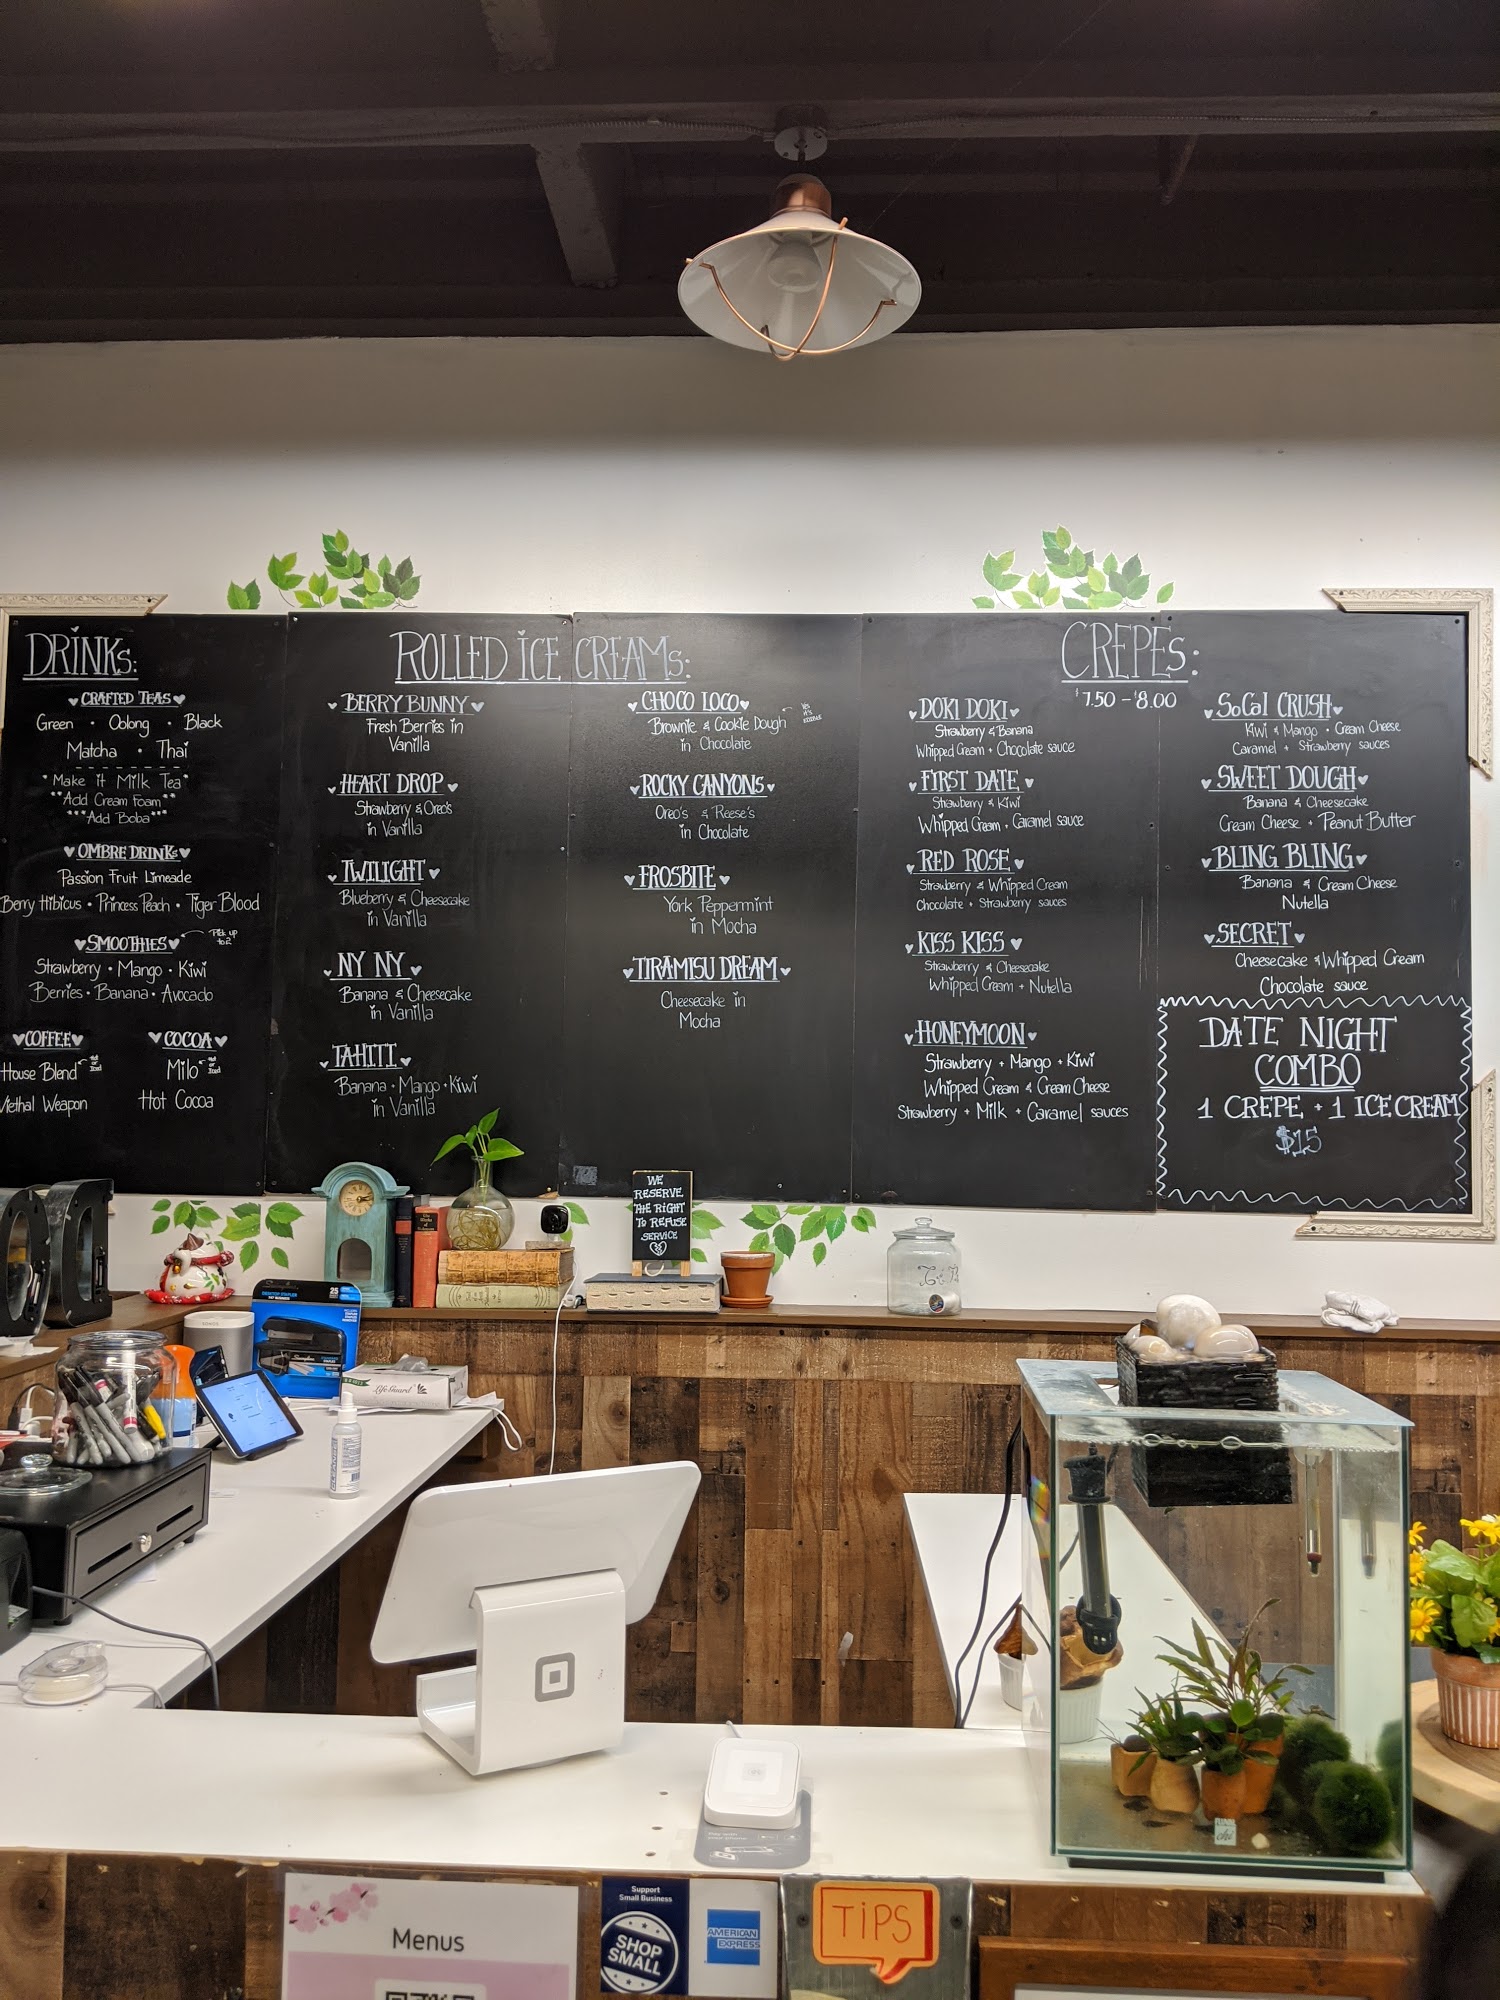 DRINKs:
CRAFTED TEAS
Green • Oolong • Black
Matcha • Thai
*Make it Milk Tea*
**Add Cream Foam**
***Add Boba***
OMBRE DRINKs
Passion Fruit Limeade
Berry Hibicus • Princess Peach • Tiger Blood
SMOOTHIES
Pick up
to 2
Strawberry • Mango • Kiwi
Berries • Banana • Avocado
COFFEE
House Blend
Hot
or
Iced
Viethal Weapon
COCOA
Milo
Hot
or
Iced
Hot Cocoa
ROLLED ICE CREAMs:
BERRY BUNNY
Fresh Berries in
Vanilla
HEART DROP
Strawberry & Oreo's
in Vanilla
TWILIGHT
Blueberry & Cheesecake
in Vanilla
NY NY
Banana & Cheesecake
in Vanilla
TAHITI
Banana • Mango • Kiwi
in Vanilla
CHOCO LOCO
Brownie & Cookie Dough
Yes
it's
EDIBLE
in Chocolate
ROCKY CANYONS
Oreo's & Reese's
in Chocolate
FROSBITE
York Peppermint
in Mocha
TIRAMISU DREAM
Cheesecake in
Mocha
CREPEs:
$7.50 - $8.00
DOKI DOKI
Strawberry & Banana
Whipped Cream + Chocolate sauce
FIRST DATE
Strawberry & Kiwi
Whipped Cream + Caramel sauce
RED ROSE
Strawberry & Whipped Cream
Chocolate + Strawberry sauces
KISS KISS
Strawberry & Cheesecake
Whipped Cream + Nutella
HONEYMOON
Strawberry + Mango + Kiwi
Whipped Cream & Cream Cheese
Strawberry + Milk + Caramel sauces
SoCal CRUSH
Kiwi & Mango + Cream Cheese
Caramel + Strawberry sauces
SWEET DOUGH
Banana & Cheesecake
Cream Cheese + Peanut Butter
BLING BLING
Banana & Cream Cheese
Nutella
SECRET
Cheesecake & Whipped Cream
Chocolate sauce
DATE NIGHT
COMBO
1 CREPE + 1 ICE CREAM
$15
WE
RESERVE
THE RIGHT
TO REFUSE
SERVICE
SONOS
Swingline
25
LifeGuard
Menus
Support
Small Business
SHOP
SMALL
AMERICAN
EXPRESS
TIPS